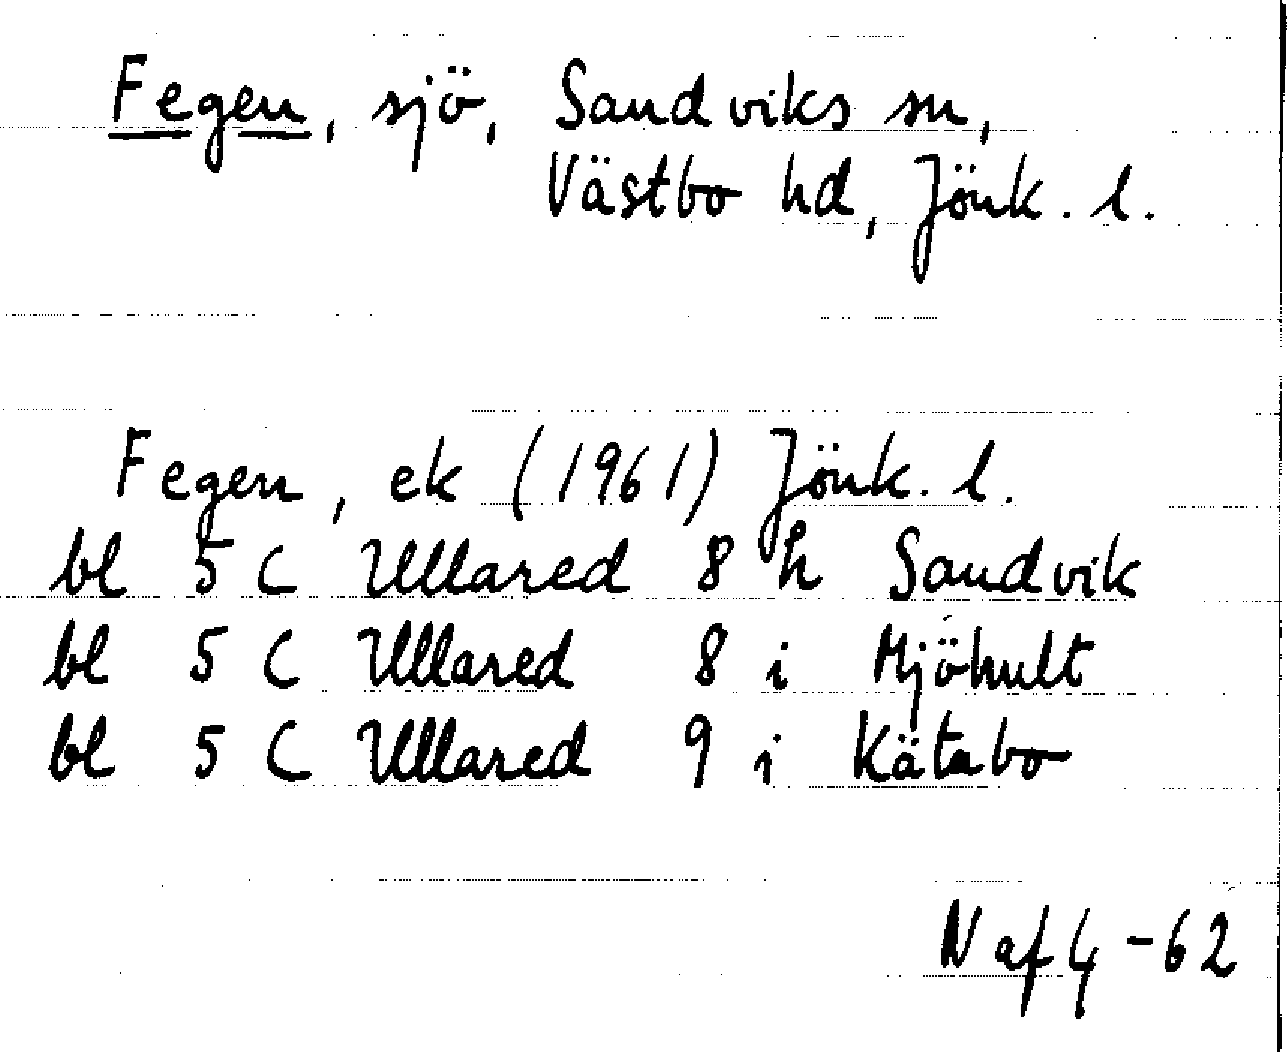 Fegen, sjö, Sandviks sn,
Västbo hd, Jönk. l.
Fegen, ek (1961) Jönk. l.
bl 5 C Ullared 8 h Sandvik
bl 5 C Ullared 8 i Mjöhult
bl 5 C Ullared 9 i Kätabo
N af G -62